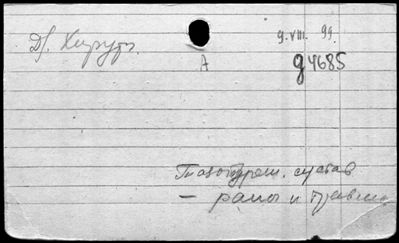 Д/. Хирург. 9.VIII. 99.
А g4685
Тазобедрен. сустав
— раны и травмы